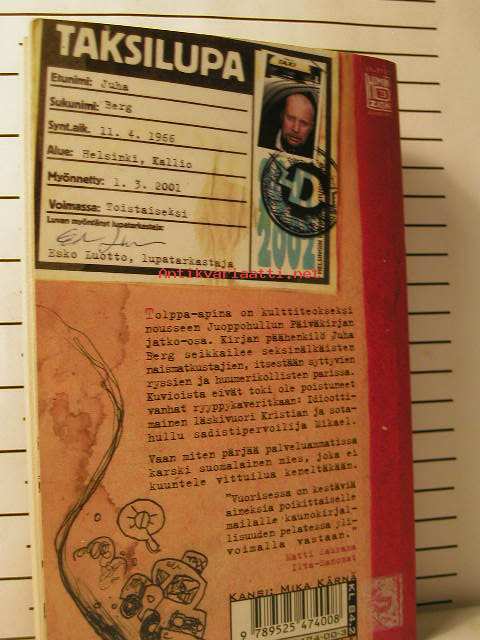 TAKSILUPA
Etunimi: Juha
Sukunimi: Berg
Synt.aik. 11. 4. 1966
Alue: Helsinki, Kallio
Myönnetty: 1. 3. 2001
Voimassa: Toistaiseksi
Luvan myöntänyt lupatarkastaja:
Esko Luotto, lupatarkastaja
TAXI
2002
Antikvariaatti.net
Tolppa-apina on kulttiteokseksi
nousseen Juoppohullun Päiväkirjan
jatko-osa. Kirjan päähenkilö Juha
Berg seikkailee seksinälkäisten
naismatkustajien, itsestään syttyvien
ryssien ja huumerikollisten parissa.
Kuvioista eivät toki ole poistuneet
vanhat ryyppykaveritkaan: Idiootti-
mainen läskivuori Kristian ja sota-
hullu sadistipervoilija Mikael.
Vaan miten pärjää palveluammatissa
karski suomalainen mies, joka ei
kuuntele vittuilua keneltäkään.
"Vuorisessa on kestäviä
aineksia poikittaiselle
mailalle kaunokirjal-
lisuuden pelatessa yli-
voimalla vastaan."
Matti Saurama
Ilta-Sanomat
Kansi: Mika Kärnä
KL 84.2
9 789525 474008